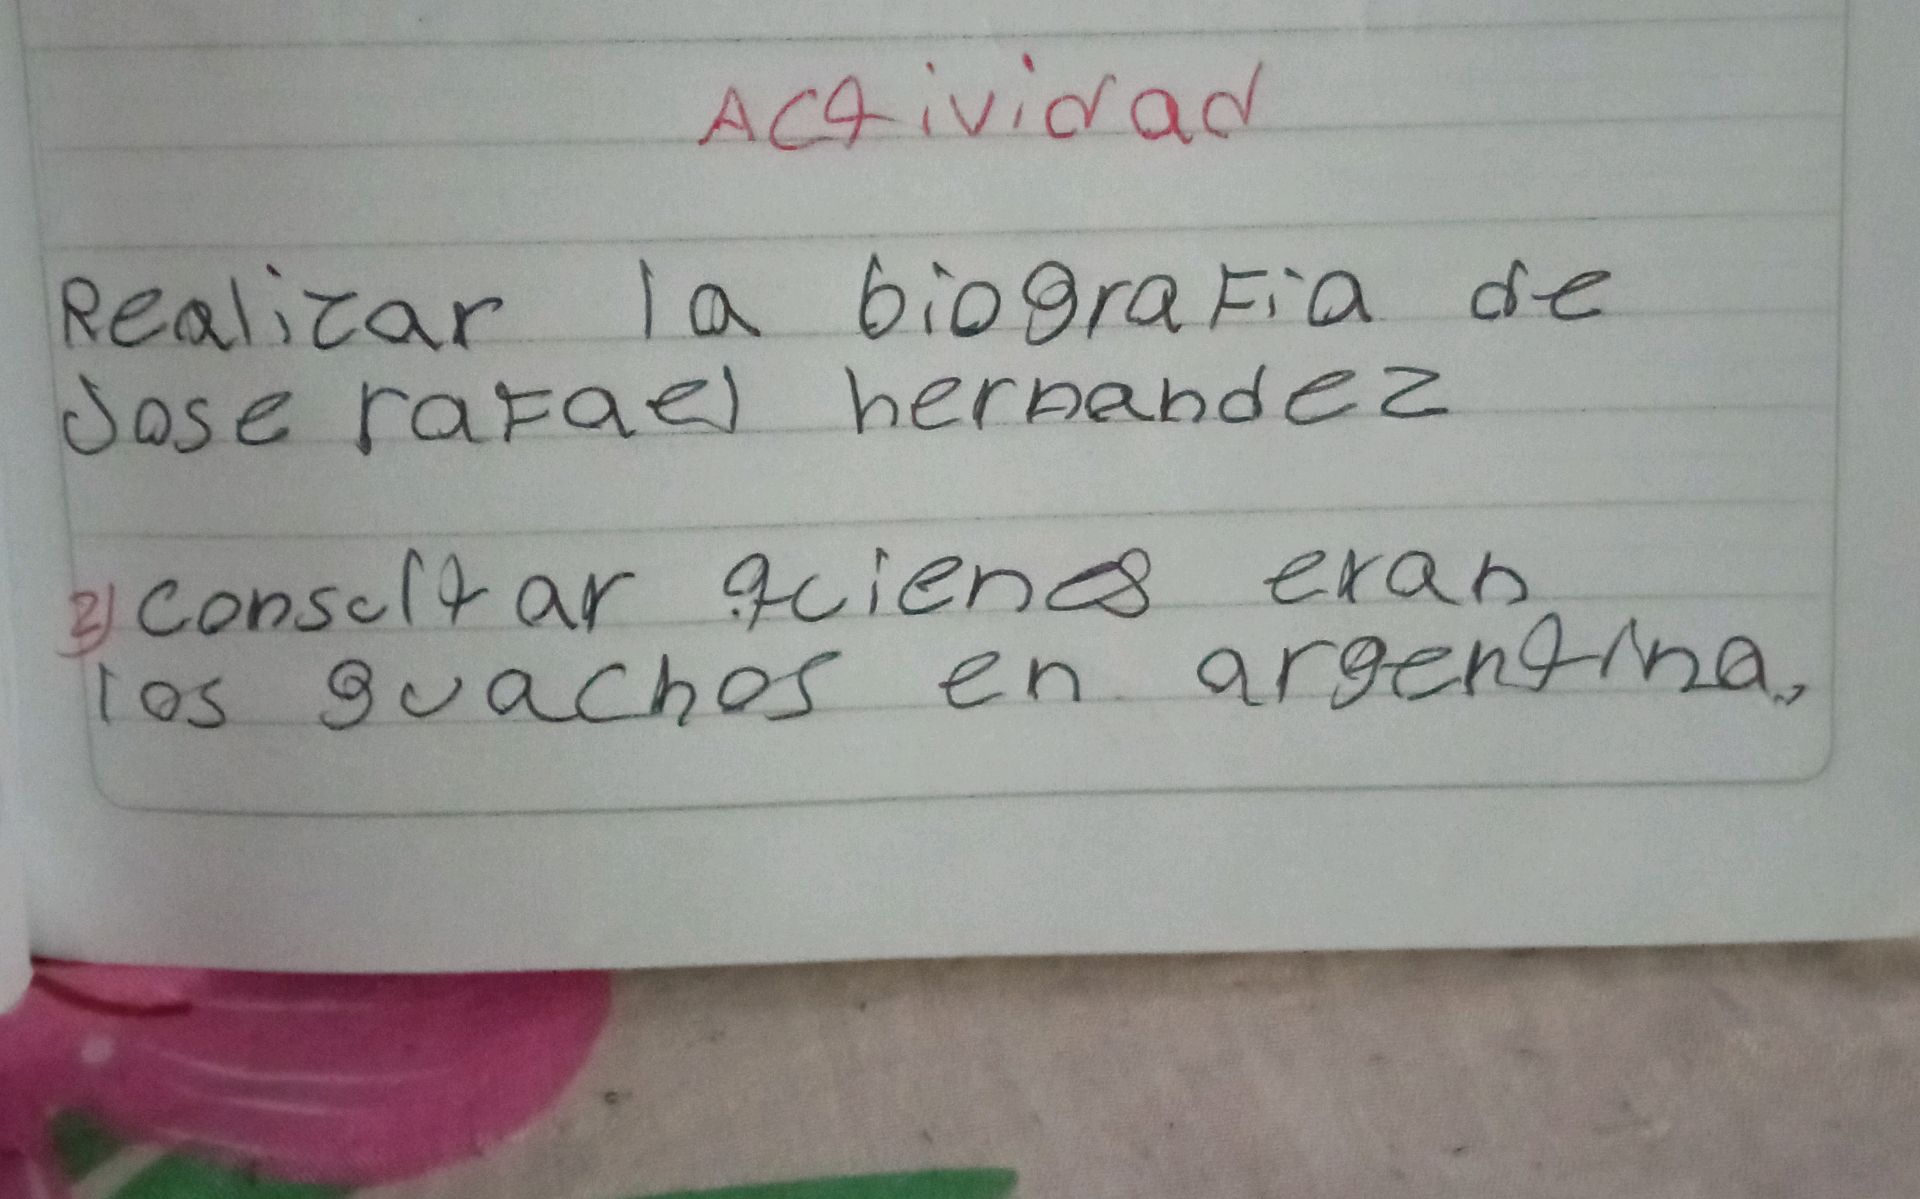 Actividad
Realizar la biografia de
Jose rafael hernandez
2) consultar quienes eran
los guachos en argentina.